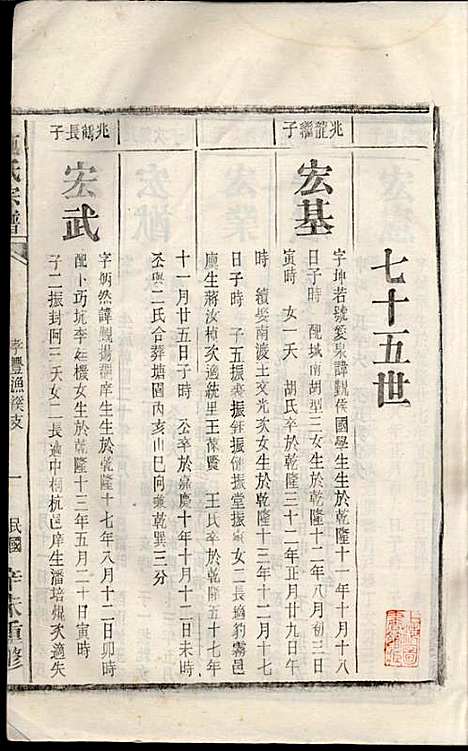 七十五世
兆龍繼子
宏基
字坤若號篆渠諱觀侯國學生生於乾隆十一年十月十八
日子時 配城南胡型三女生於乾隆十二年八月初三日
寅時 女一夭 胡氏卒於乾隆三十二年正月廿九日午
時 續娶南渡王文光次女生於乾隆十三年十二月十七
日子時 子五振聲振鈺振健振堂振 女二長適豹霧邑
廩生蔣汝楨次適統里王葆賢 王氏卒於乾隆五十七年
十一月廿五日子時 公卒於嘉慶十年十月十二日未時
丕與二氏合葬塘園內亥山巳向兼乾巽三分
兆鶴長子
宏武
字炳然諱觀揚邑庠生生於乾隆十七年八月十二日卯時
配卜巧坑李廷機女生於乾隆十三年五月二十日寅時
子二振封阿三夭女二長適中桐杭邑庠生潘培焜次適失
氏宗譜
孝豐漁溪支
一
民國辛未重修